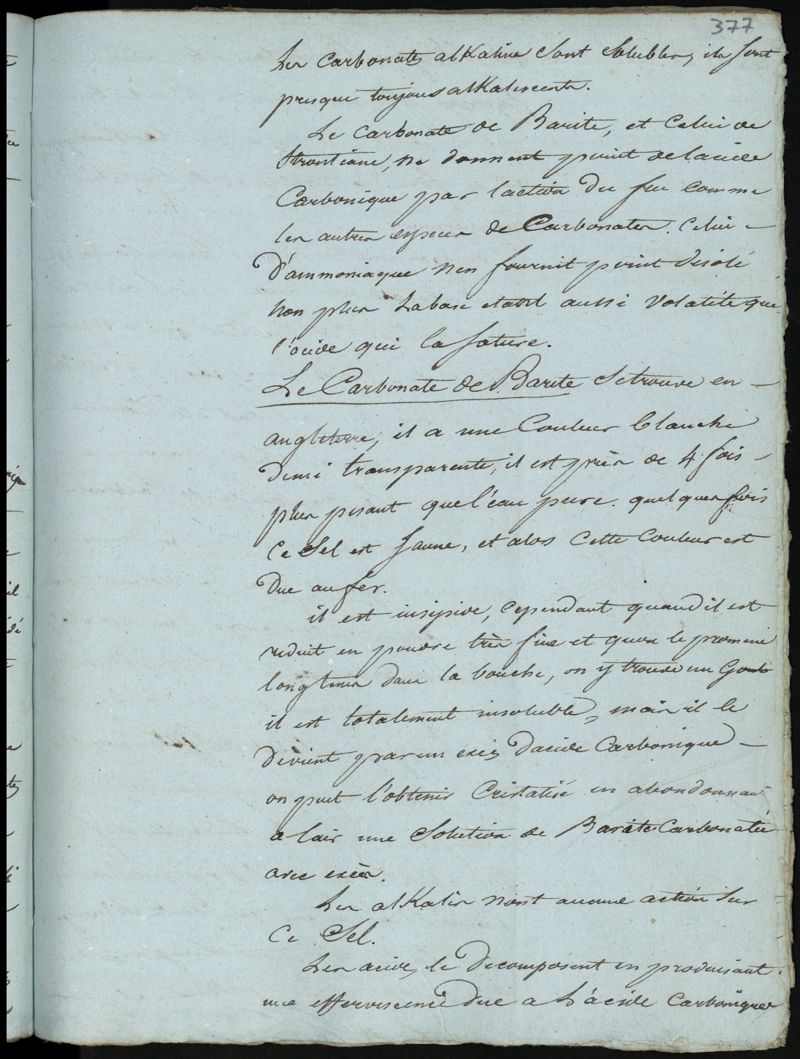 377
Les carbonates alkalins sont solubles, ils sont
presque toujours alkalescents.
Le carbonate de Barite, et celui de
Strontiane, ne donnent point de l'acide
Carbonique par l'action du feu comme
les autres especes de Carbonates. Celui -
D'ammoniaque n'en fournit point d'isolé
non plus la base etant aussi volatile que
l'acide qui la sature.
Le Carbonate de Barite se trouve en -
angleterre, il a une Couleur blanche
Demi transparente, il est près de 4 fois -
plus pesant que l'eau pure. quelques fois
Ce Sel est Jaune, et alors cette couleur est
Due au fer.
il est insipide, cependant quand il est
reduit en poudre très fine et qu'on le promene
longtems dans la bouche, on y trouve un Gout
il est totalement insoluble, mais il le
Devient par un exès D'acide Carbonique -
on peut l'obtenir Cristalisé en abandonnant
a l'air une Solution de Barite Carbonatée
avec exès.
Les alKalis n'ont aucune action sur
Ce Sel.
Les acides le Decomposent en produisant
une effervescence Due a l'acide Carbonique